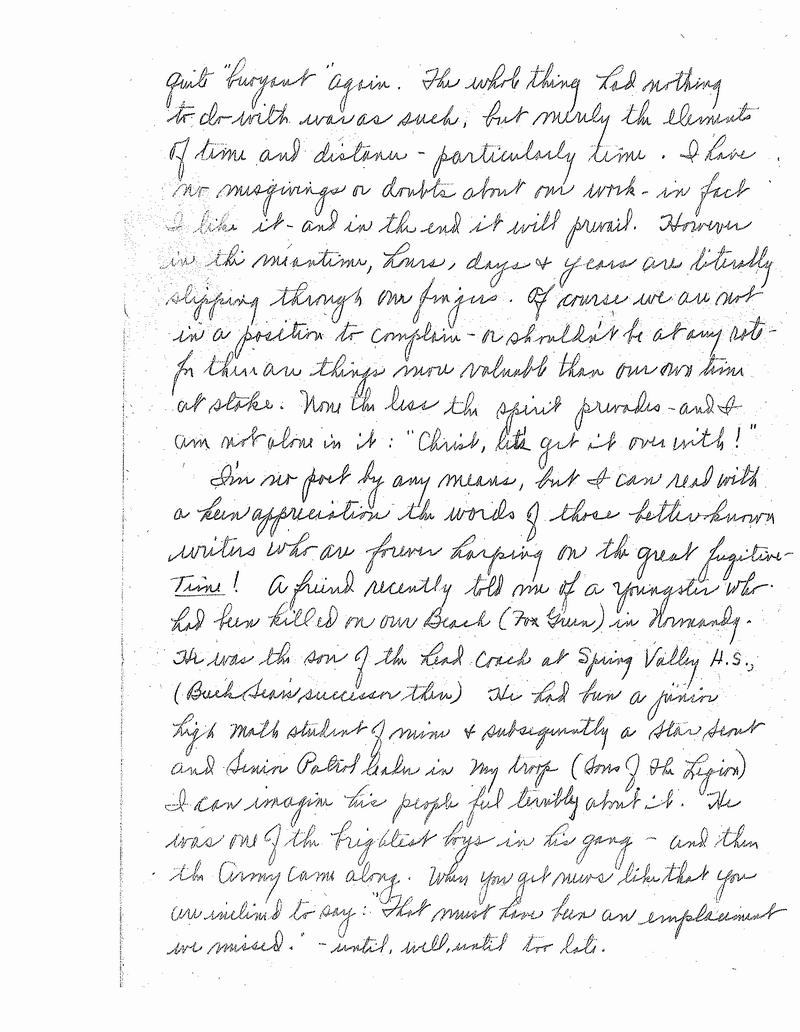 quite "buoyant" again. The whole thing had nothing
to do with war as such, but merely the elements
of time and distance - particularly time. I have
no misgivings or doubts about our work - in fact
I like it - and in the end it will prevail. However
in the meantime, hours, days & years are literally
slipping through our fingers. Of course we are not
in a position to complain - or shouldn't be at any rate -
for there are things more valuable than our own time
at stake. None the less the spirit prevades - and I
am not alone in it: "Christ, let's get it over with!"
I'm no poet by any means, but I can read with
a keen appreciation the words of those better known
writers who are forever harping on the great fugitive -
Time! A friend recently told me of a youngster who
had been killed on our Beach (Fox Green) in Normandy.
He was the son of the head Coach at Spring Valley H.S.,
(Buck successor there) He had been a junior
high math student of mine & subsequently a Star Scout
and Senior Patrol leader in my troop (Sons of the Legion)
I can imagine his people feel terribly about it. He
was one of the brightest boys in his gang - and then
the Army came along. When you get news like that you
are inclined to say: "That must have been an emplacement
we missed." - until, well, until too late.